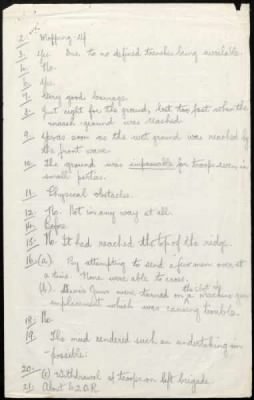 2. Mopping-Up
3. Yes. Due to no defined trenches being available.
4. No.
5. Yes.
7. Very good barrage.
8. Just right for the ground, but too fast when the
morass ground was reached.
9. As soon as the wet ground was reached by
the front wave.
10. The ground was impassible for troops even in
small parties.
11. Physical obstacles.
12. No. Not in any way at all.
14. Before.
15. No. It had reached the top of the ridge.
16. (a). By attempting to send a few men over at
a time. None were able to cross.
(b). Lewis Guns were turned on the slot of a machine gun
emplacement which was causing trouble.
18. No
19. The mud rendered such an undertaking im-
possible.
20. (c) Withdrawal of troops on left brigade.
21. About 420 R